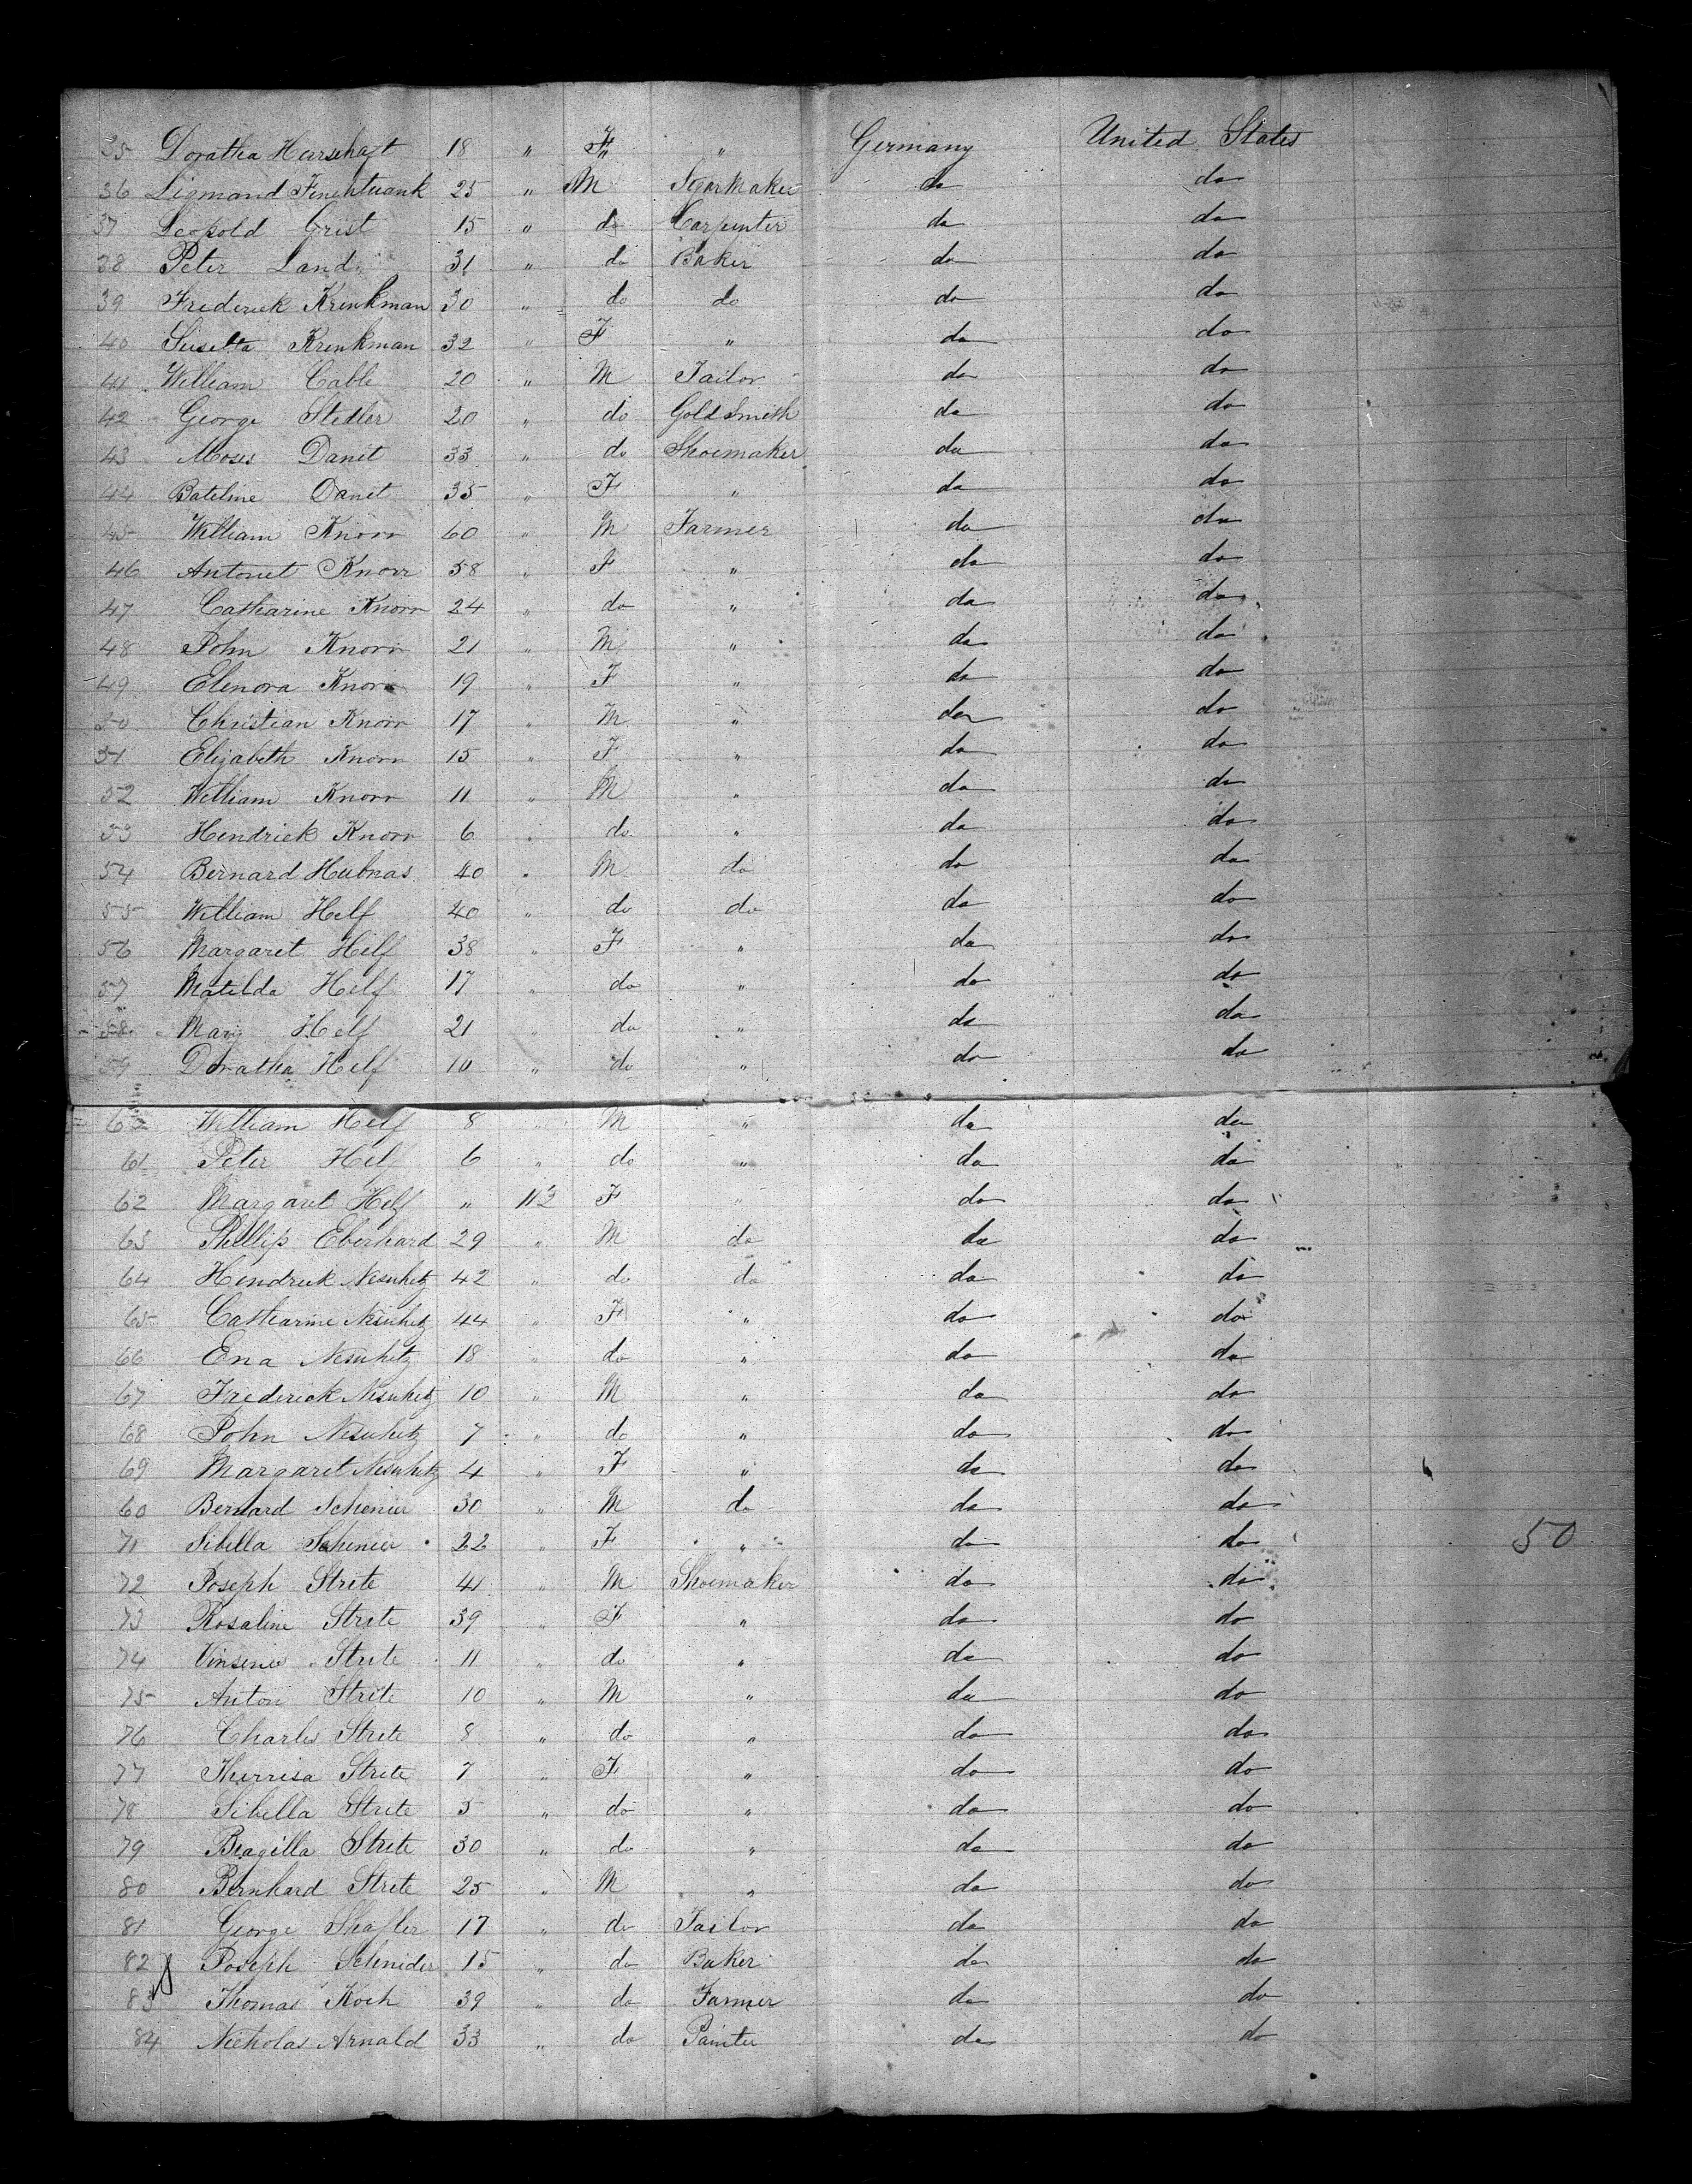 35 Doratha Herschaft 18 " F " Germany United States
36 Sigmand 25 " M Segar Maker do do
37 Leopold Grist 15 " do Carpenter do do
38 Peter Land 31 " do Baker do do
39 Frederick Krenkman 30 " do do do do
40 Susetta Krenkman 32 " F " do do
41 William Cable 20 " M Tailor do do
42 George Stedler 20 " do Gold Smith do do
43 Moses Danet 33 " do Shoemaker do do
44 Bateline Danet 35 " F " do do
45 William Knorr 60 " M Farmer do do
46 Antonet Knorr 58 " F " do do
47 Catharine Knorr 24 " do " do do
48 John Knorr 21 " M " do do
49 Elenora Knorr 19 " F " do do
50 Christian Knorr 17 " M " do do
51 Elizabeth Knorr 15 " F " do do
52 William Knorr 11 " M " do do
53 Hendrick Knorr 6 " do " do do
54 Bernard Hubnas 40 " M do do do
55 William Helf 40 " do do do do
56 Margaret Helf 38 " F " do do
57 Matilda Helf 17 " do " do do
58 Mary Helf 21 " do " do do
59 Doratha Helf 10 " do " do do
60 William Helf 8 " M " do do
61 Peter Helf 6 " do " do do
62 Margaret Helf " F " do do
63 Phillip Eberhard 29 " M do do do
64 Hendrick Nesuhetz 42 " do do do do
65 Catharine Nesuhetz 44 " F " do do
66 Ena Nesuhetz 18 do " do do
67 Frederick Nesuhetz 10 " M " do do
68 John Nesuhetz 7 " do " do do
69 Margaret Nesuhetz 4 " F " do do
60 Bernard Schenier 30 " M do do do
71 Sibella Schenier 22 " F " do do 50
72 Joseph Strite 41 " M Shoemaker do do
73 Rosaline Strite 39 " F " do do
74 Strite 11 " do " do do
75 Anton Strite 10 " M " do do
76 Charles Strite 8 " do " do do
77 Therrisa Strite 7 " F " do do
78 Sibella Strite 5 " do " do do
79 Bragilla Strite 30 " do " do do
80 Bernhard Strite 25 " M " do do
81 George Shafler 17 " do Tailor do do
82 Joseph Schnider 15 " do Baker do do
83 Thomas Koch 39 " do Farmer do do
84 Nicholas Arnald 33 " do Painter do do